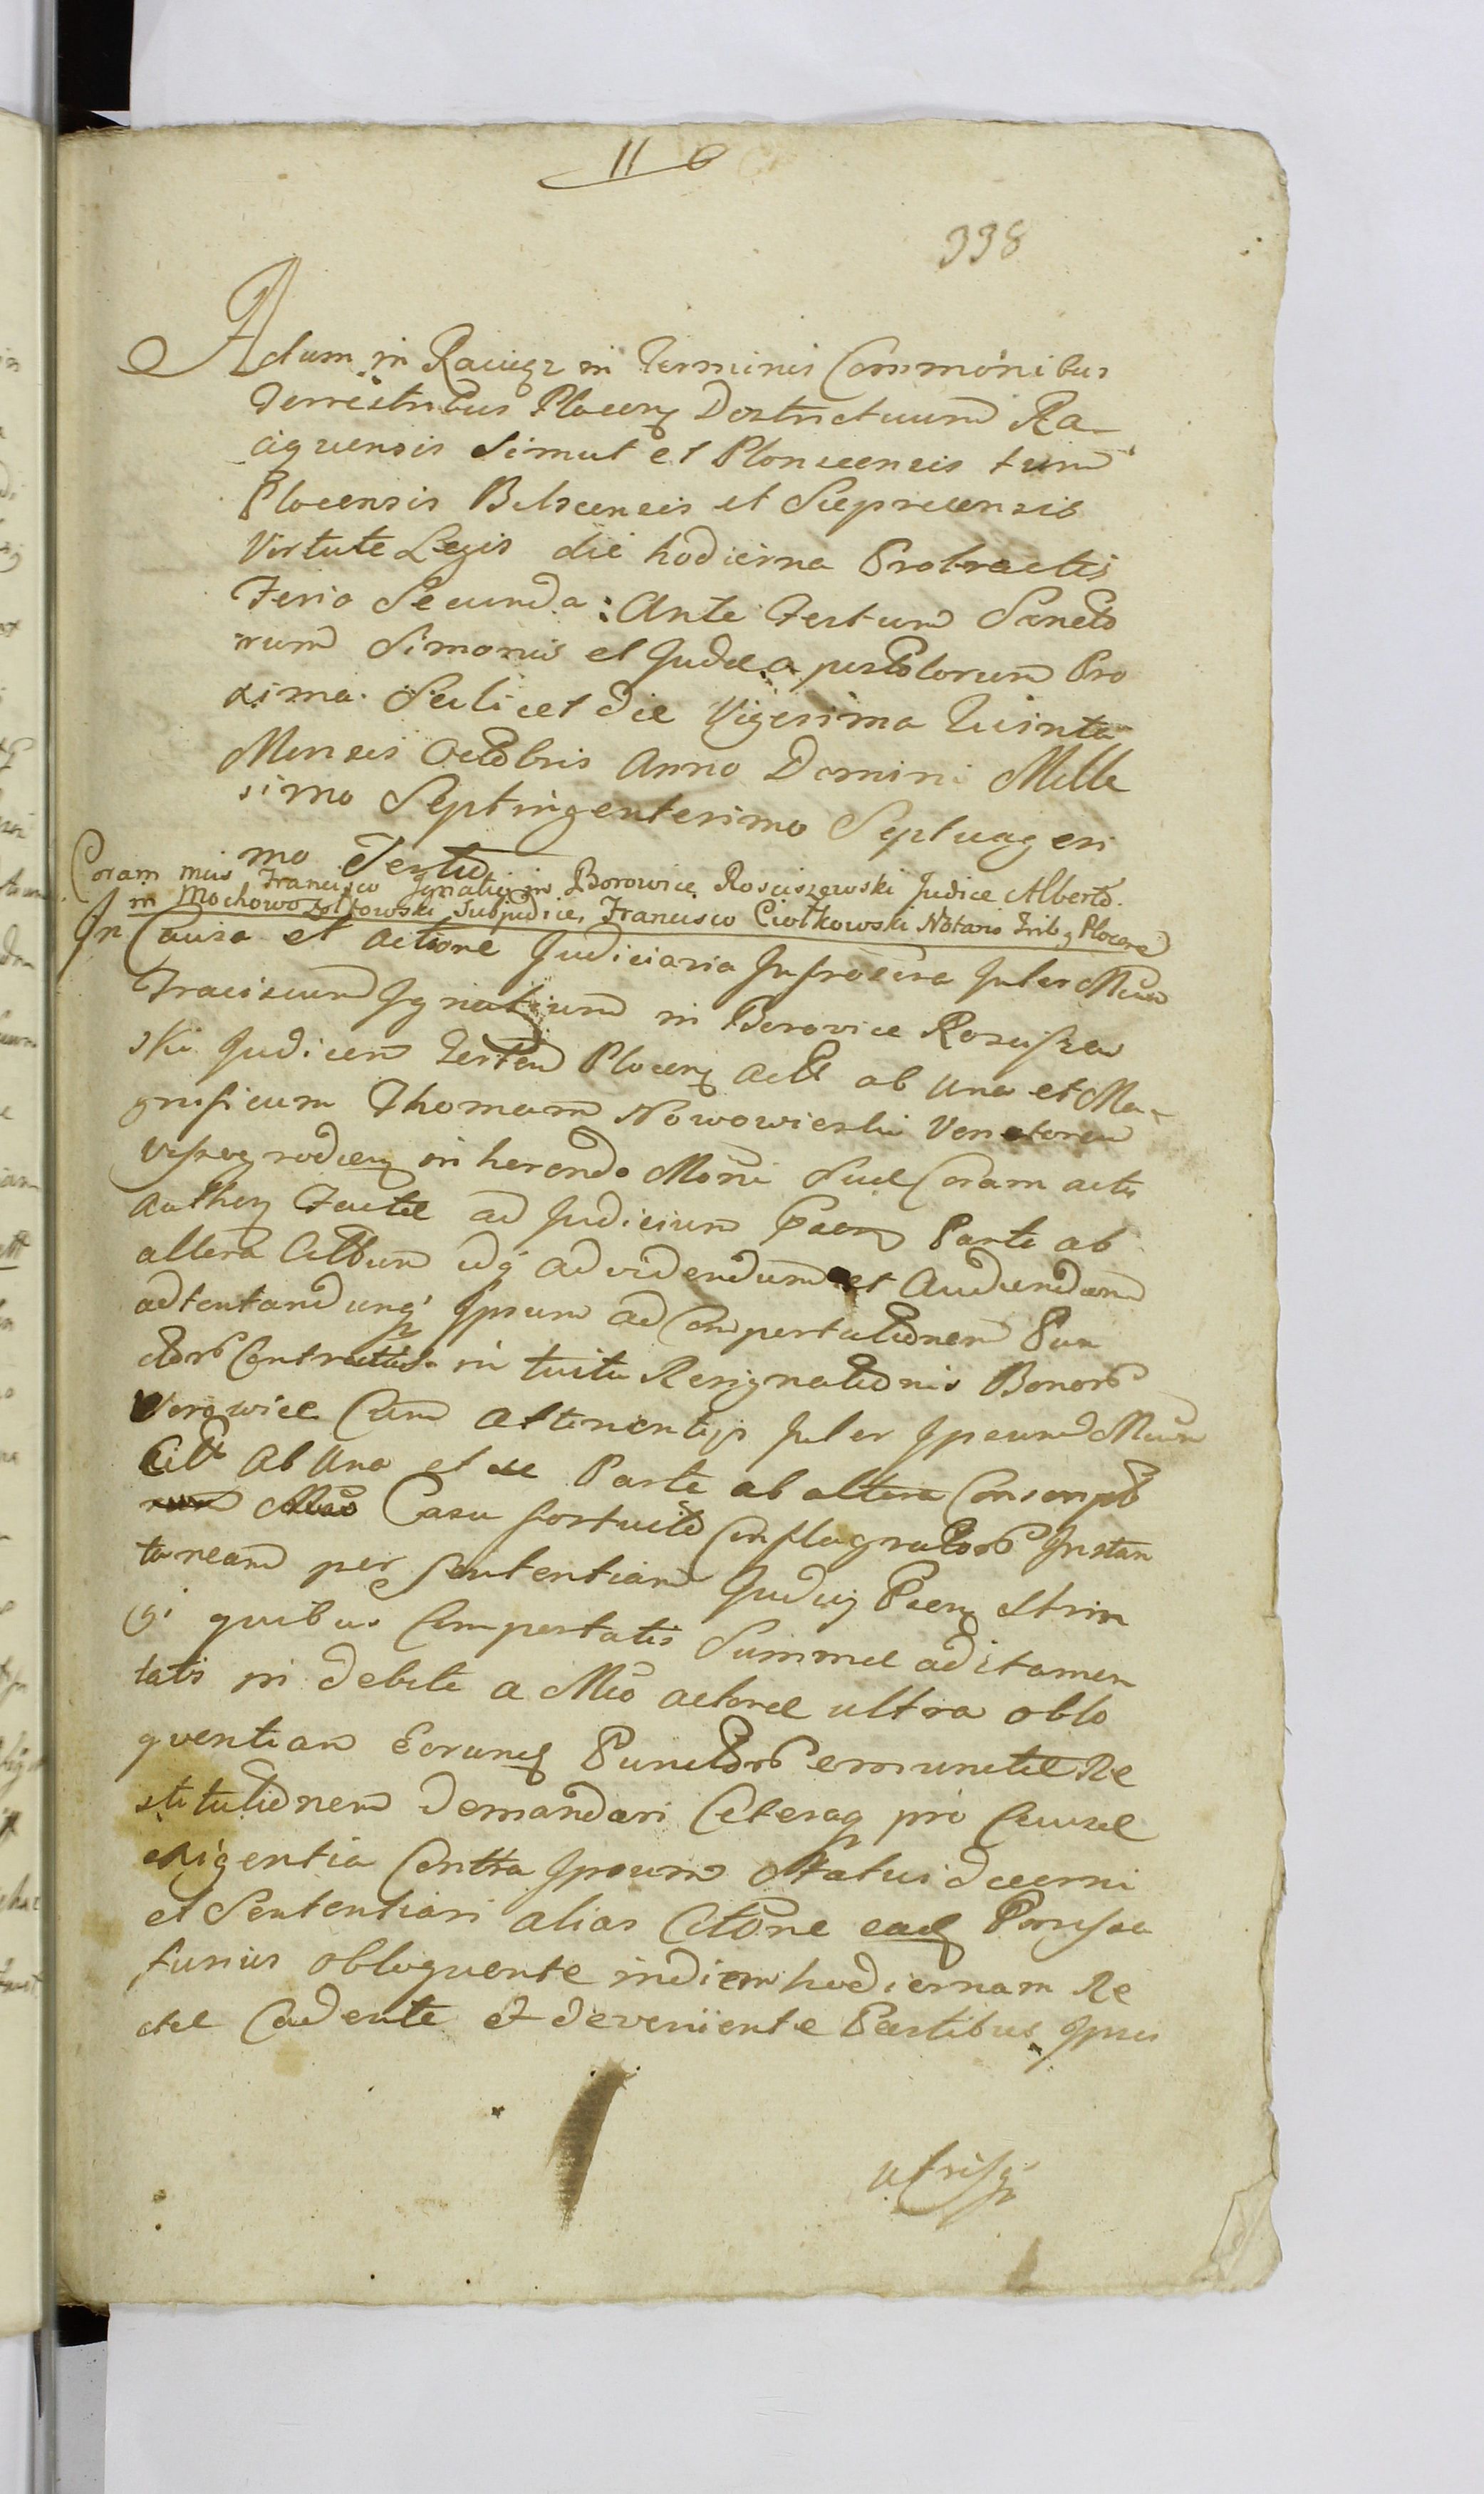 116
338
Actum in Raciąz in Terminis Commonibus
Terrestribus Plocen Districtuum Ra-
ciązensis Simul et Plonscensis tum
Plocensis Bielscensis et Sieprcensis
Virtute Legis die hodierna Protractis
Feria Secunda: Ante Festum Sancto
rum Simonis et Judae Apostolorum Pro
xima Scilicet die Vigesima Quinta
Mensis Octobris Anno Domini Mille
simo Septingentesimo Septuagesi
mo Sexto
Coram Mcis Francisco Ignatio in Borowice Rosciszewski Judice Alberto
in Mochowo Zołtowski Subjudice, Francisco Ciołkowski Notario Trib Plocen
In Causa et Actione Judiciaria Infrascra Inter Mcum
Franciscum Ignatium in Borovice Roscisze
ski Judicem Plocen ab Una et Ma-
gnificum Thomam Nowowieski Venatorem
Viszogrodien in herendo Mōni Suae Coram actis
Authen Factae ad Judicium Parte ab
altera Cittum idq ad videndum et Audiendum
adtentandumq Ipsum ad Comportationem Pun
ctorum Contractus in tuitu Resignationis Bonorum
Vorowice Cum Attinentijs Inter Ipsum Mcum
ab Una et se Parte ab altera Conscripto
rum Casu fortuito Conflagratorum Instan
taneam per Sententiam Judicij Strin
gi quibus Comportatis Summae ad
in debite a Mco actore ultra oblo
quentiam Eorumq Punctorum emunctae Re
stitutionem demandari Ceteraq pro Causae
exigentia Contra Ipsum Statui decerni
et Sententiari alias Citōne eadq
fusius obloquente in diem hodiernam Re
cte Cadente et deveniente Partibus Ipsis
utrisq